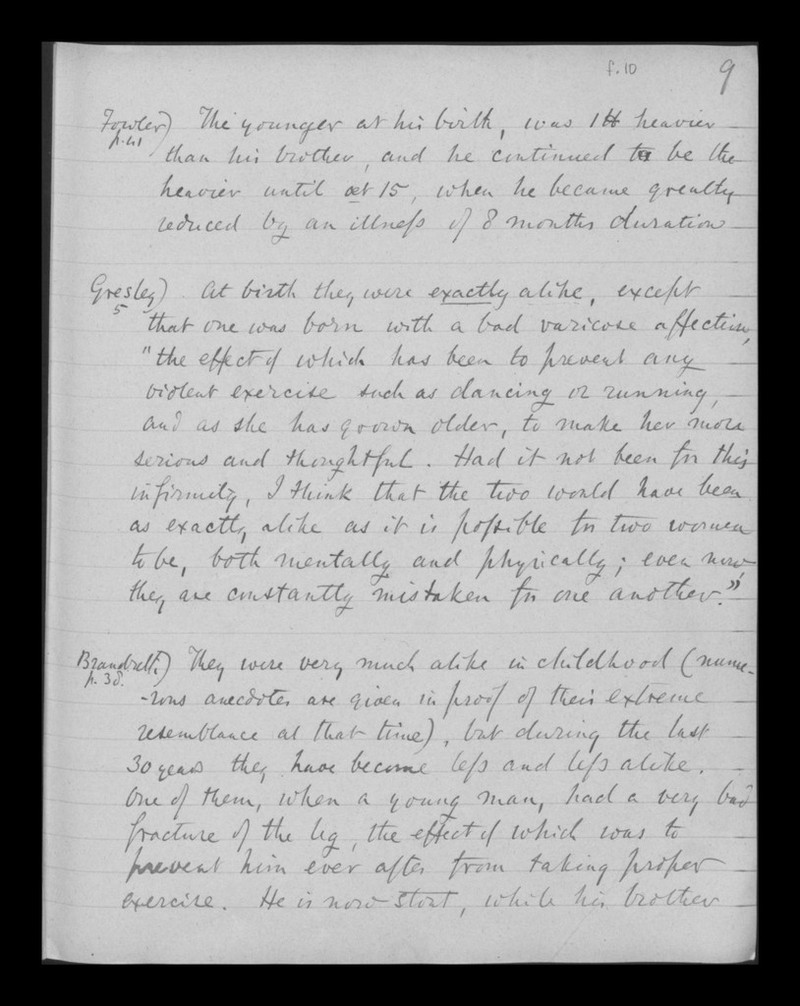 f.10
9
Fowler) The younger at his birth, was 1 lb heavier
p.41
than his brother, and he continued to be the
heavier until æt 15, when he became greatly
reduced by an illness of 8 months duration
Gresley) . At birth they were exactly alike, except
5
that one was born with a bad varicose affection,
"the effect of which has been to prevent any
violent exercise such as dancing or running,
and as she has grown older, to make her more
serious and thoughtful. Had it not been for this
infirmity, I think that the two would have been
as exactly alike as it is possible for two women
to be, both mentally and physically; even now
they are constantly mistaken for one another."
Brandreth) They were very much alike in childhood (nume-
p. 38.
-rous anecdotes are given in proof of their extreme
resemblance at that time), but during the last
30 years they have become less and less alike.
One of them, when a young man, had a very bad
fracture of the leg, the effect of which was to
prevent him ever after from taking proper
exercise. He is now stout, while his brother